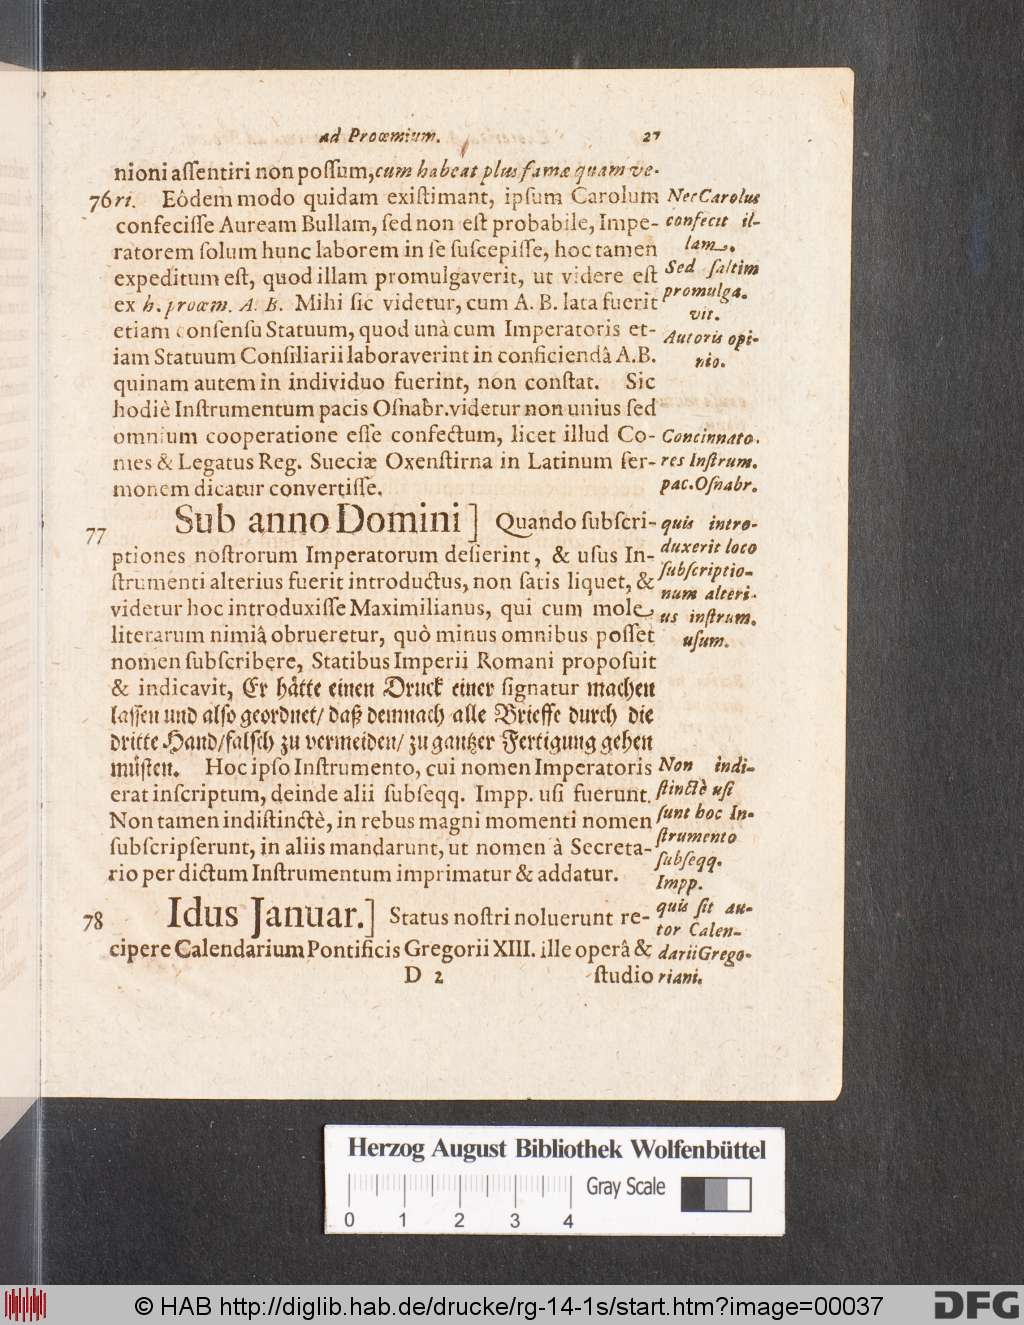 ad Proœmium. 27
nioni aſſentiri non poſſum, cum habeat plus famæ quam ve-
76 ri. Eôdem modo quidam exiſtimant, ipſum Carolum
confeciſſe Auream Bullam, ſed non eſt probabile, Impe-
ratorem ſolum hunc laborem in ſe ſuſcepiſſe, hoc tamen
expeditum eſt, quod illam promulgaverit, ut videre eſt
ex h. proœm. A. B. Mihi ſic videtur, cum A. B. lata fuerit
etiam conſenſu Statuum, quod unà cum Imperatoris et-
iam Statuum Conſiliarii laboraverint in conficiendâ A.B.
quinam autem in individuo fuerint, non conſtat. Sic
hodiè Inſtrumentum pacis Oſnabr. videtur non unius ſed
omnium cooperatione eſſe confectum, licet illud Co-
mes & Legatus Reg. Sueciæ Oxenſtirna in Latinum ſer-
monem dicatur convertiſſe.
Nec Carolus
confecit il-
lam.
Sed ſaltim
promulga-
vit.
Autoris opi-
nio.
Concinnato-
res Inſtrum.
pac. Oſnabr.
77 Sub anno Domini] Quando ſubſcri-
ptiones noſtrorum Imperatorum deſierint, & uſus In-
ſtrumenti alterius fuerit introductus, non ſatis liquet, &
videtur hoc introduxiſſe Maximilianus, qui cum mole
literarum nimiâ obrueretur, quò minus omnibus poſſet
nomen ſubſcribere, Statibus Imperii Romani propoſuit
& indicavit, Er hätte einen Druck einer ſignatur machen
laſſen und alſo geordnet/ daß demnach alle Brieffe durch die
dritte Hand/ falſch zu vermeiden/ zu gantzer Fertigung gehen
müſten. Hoc ipſo Inſtrumento, cui nomen Imperatoris
erat inſcriptum, deinde alii ſubſeqq. Impp. uſi fuerunt.
Non tamen indiſtinctè, in rebus magni momenti nomen
ſubſcripſerunt, in aliis mandarunt, ut nomen à Secreta-
rio per dictum Inſtrumentum imprimatur & addatur.
quis intro-
duxerit loco
ſubſcriptio-
num alteri-
us inſtrum.
uſum.
Non indi-
ſtinctè uſi
ſunt hoc In-
ſtrumento
ſubſeqq.
Impp.
78 Idus Januar.] Status noſtri noluerunt re-
cipere Calendarium Pontificis Gregorii XIII. ille operâ &
D 2 ſtudio
quis ſit au-
tor Calen-
darii Grego-
riani.
Herzog August Bibliothek Wolfenbüttel
Gray Scale
0 1 2 3 4
© HAB http://diglib.hab.de/drucke/rg-14-1s/start.htm?image=00037
DFG